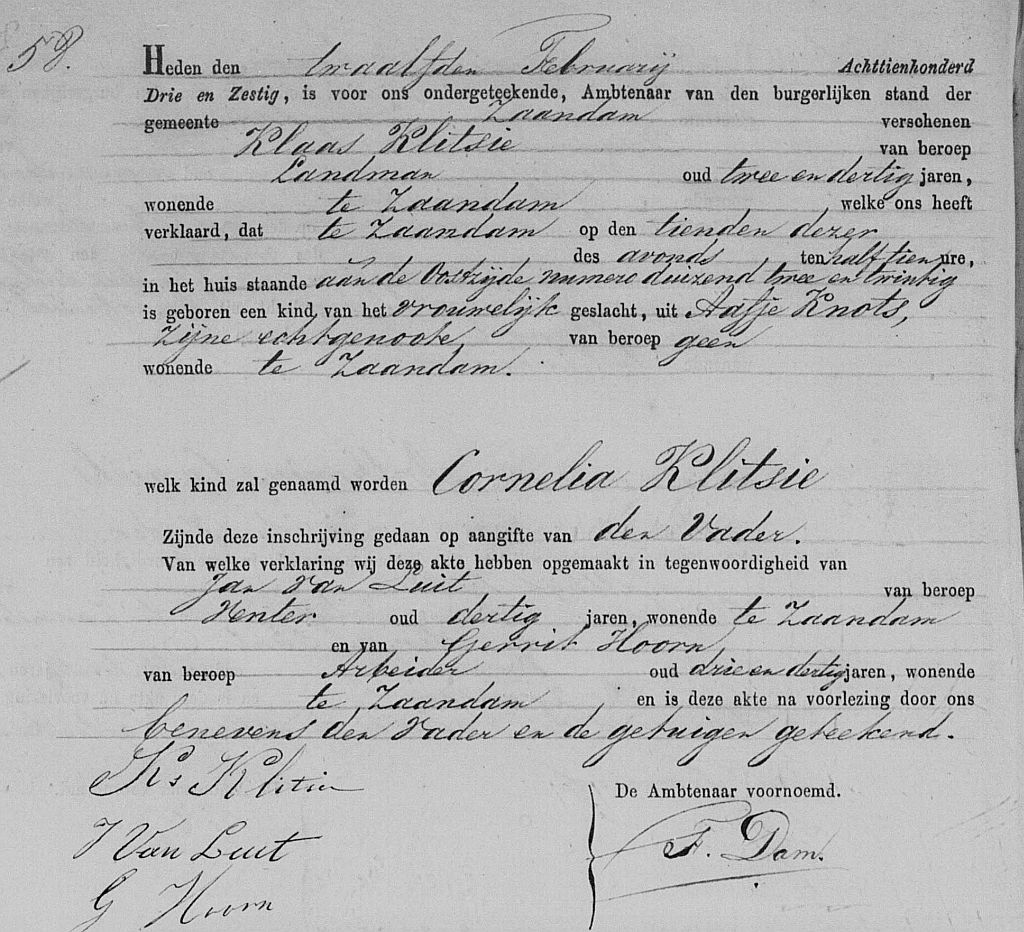 58.
Heden den twaalfden Februarij Achttienhonderd
Drie en Zestig, is voor ons ondergeteekende, Ambtenaar van den burgerlijken stand der
gemeente Zaandam verschenen
Klaas Klitsie van beroep
Landman oud twee en dertig jaren,
wonende te Zaandam, welke ons heeft
verklaard, dat te Zaandam op den tienden dezer
des avonds ten half tien ure,
in het huis staande aan de Oostzijde numero duizend twee en twintig
is geboren een kind van het vrouwelijk geslacht, uit Aafje Knots,
zijne echtgenoote, van beroep geen
wonende te Zaandam.
welk kind zal genaamd worden Cornelia Klitsie
Zijnde deze inschrijving gedaan op aangifte van den Vader.
Van welke verklaring wij deze akte hebben opgemaakt in tegenwoordigheid van
Jan van Luit van beroep
Venter oud dertig jaren, wonende te Zaandam
en van Gerrit Hoorn
van beroep Arbeider oud drie en dertig jaren, wonende
te Zaandam, en is deze akte na voorlezing door ons
benevens den Vader en de getuigen geteekend.
Ks Klitsie
J Van Luit
G Hoorn
De Ambtenaar voornoemd.
F. Dam.